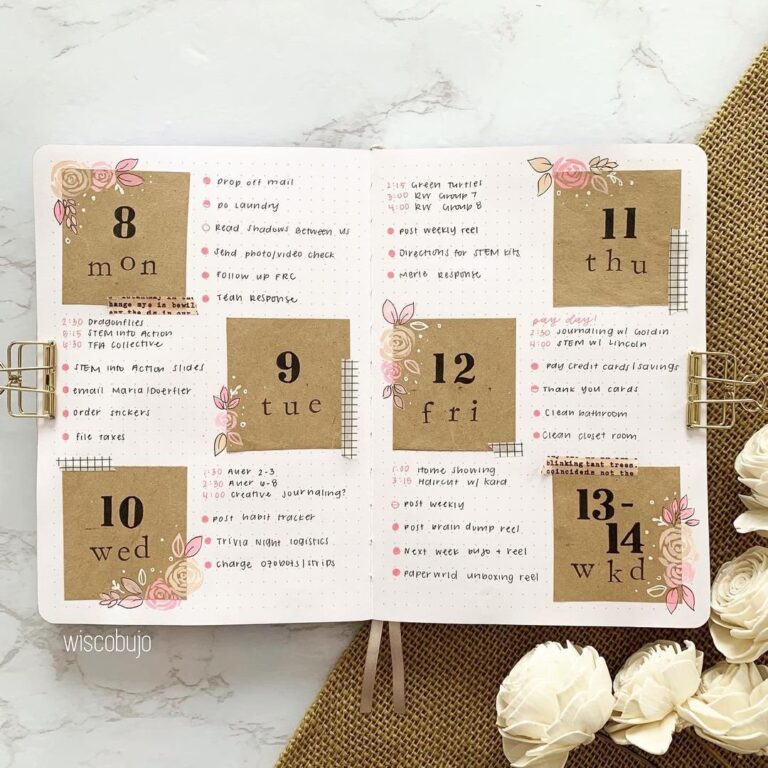 8
mon
Drop off mail
Do laundry
Read Shadows Between Us
Send photo/video check
Follow up FRC
Teah Response
2:30 Dragonflies
STEM into Action
TFA Collective
STEM into Action slides
email Maria/Doerfler
order stickers
file taxes
9
tue
10
wed
1:30 Auer 2-3
2:30 Auer 6-8
4:00 Creative Journaling?
Post habit tracker
Trivia Night logistics
Charge ozobots/strips
2:15 Green Turtles
3:00 RW Group 7
4:00 RW Group 8
Post weekly reel
Directions for STEM kits
Merle Response
11
thu
12
fri
pay day!
2:30 Journaling w/ Goldin
4:00 STEM w/ Lincoln
Pay credit cards/savings
Thank you cards
Clean bathroom
Clean closet room
1:00 Home Showing
3:15 Haircut w/ Kard
Post weekly
Post brain dump reel
Next week bujo + reel
Paperwrld unboxing reel
blinking tant trees.
coincident not the
13-
14
wkd
wiscobujo